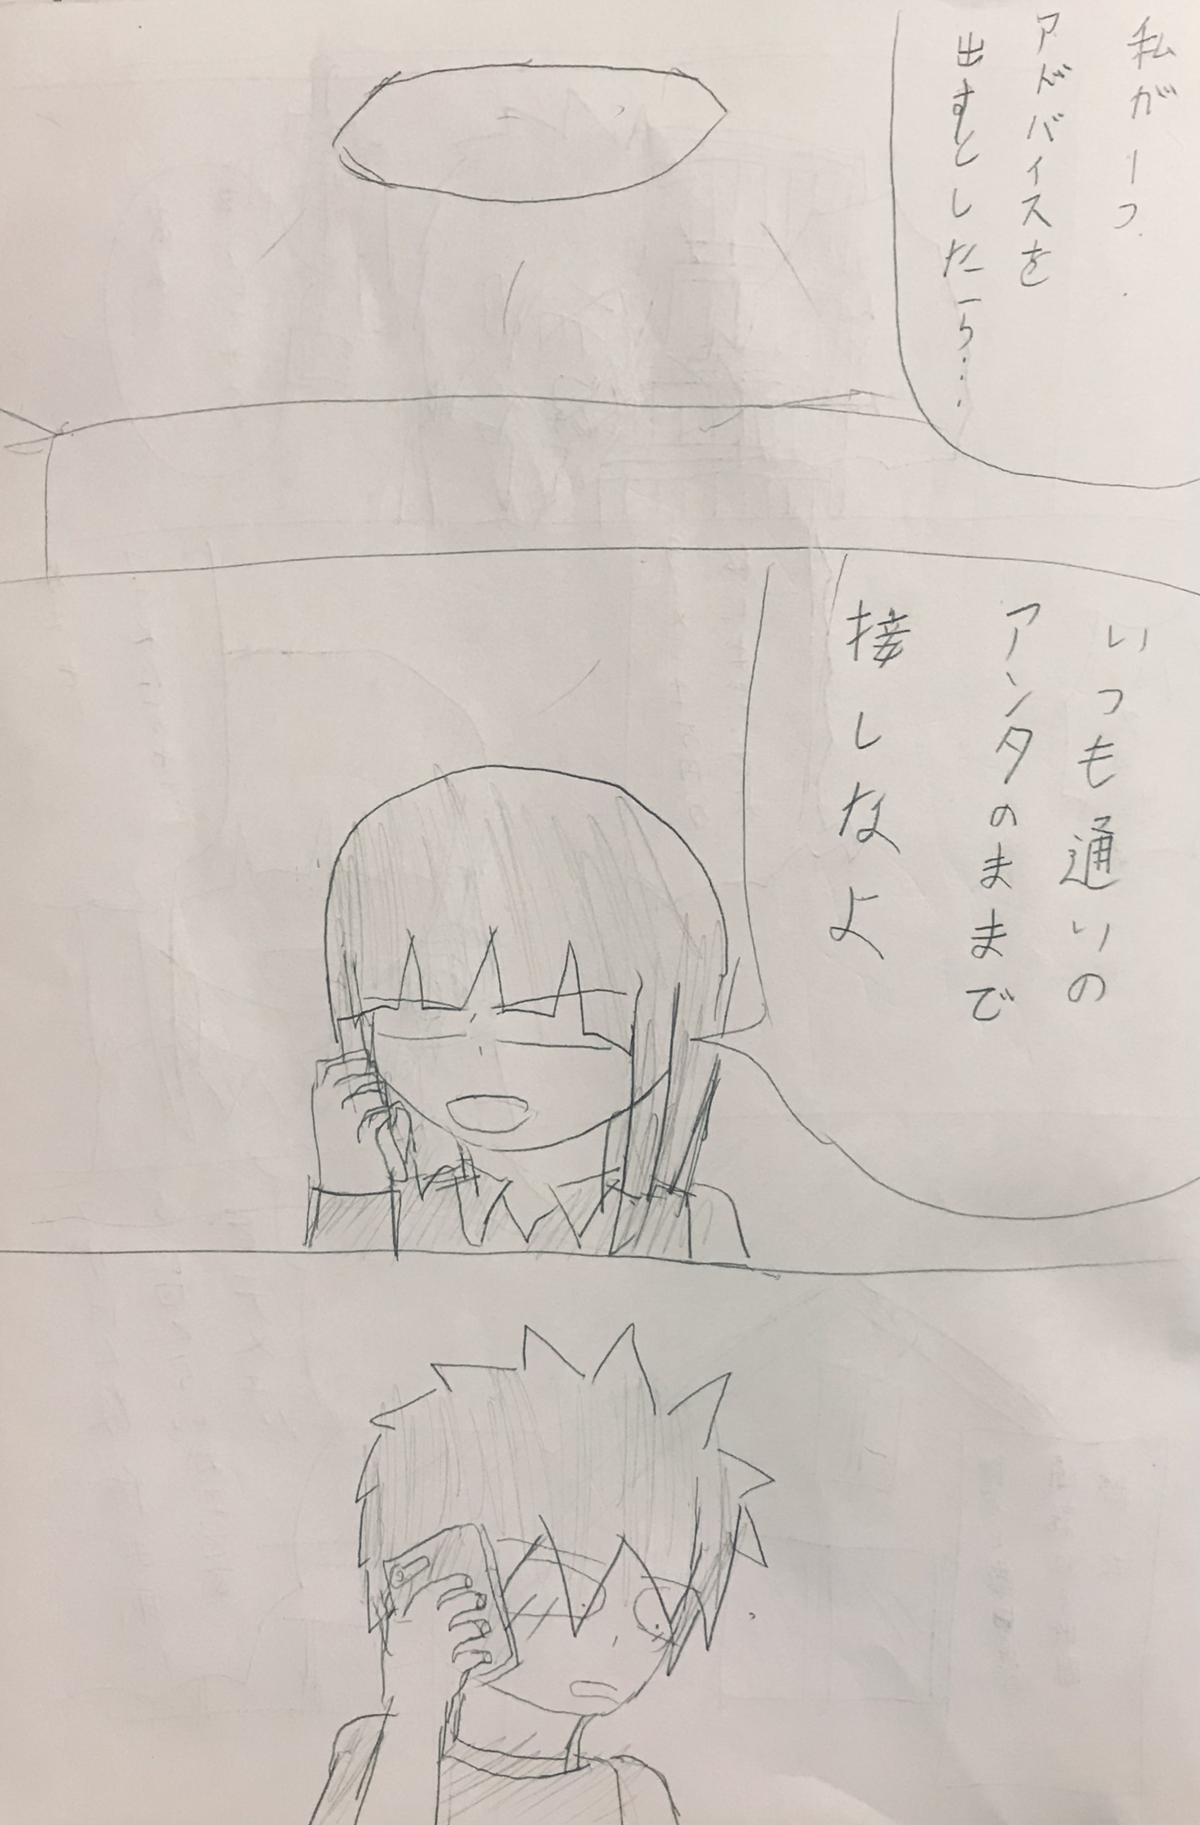 私が一つ
アドバイスを
出すとしたら…
いつも通いの
アンタのままで
接しなよ